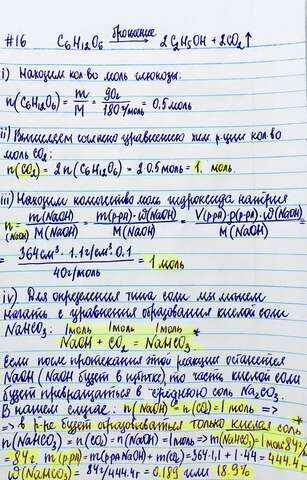 #16 C₆H₁₂O₆ брошение → 2C₂H₅OH + 2CO₂↑
i) Находим кол-во моль глюкозы:
n(C₆H₁₂O₆) = m/M = 90г/180 г/моль = 0.5 моль
ii) согласно уравнению хим. р-ции кол-во
моль CO₂:
n(CO₂) = 2n(C₆H₁₂O₆) = 2·0.5 моль = 1. моль.
iii) Находим количество моль гидроксида натрия
n(NaOH) = m(NaOH)/M(NaOH) = m(р-ра)·ω(NaOH)/M(NaOH) = V(р-ра)·ρ(р-ра)·ω(NaOH)/M(NaOH) =
= 364см³·1.1г/см³·0.1/40г/моль = 1 моль
iv) Для определения типа соли мы можем
начать с уравнения образования кислой соли
NaHCO₃: 1моль 1моль 1моль
NaOH + CO₂ = NaHCO₃ *
Если после протекания этой реакции останется
NaOH (NaOH будет в избытке), то часть кислой соли
будет превращаться в среднюю соль Na₂CO₃.
В нашем случае: n(NaOH) = n(CO₂) = 1 моль =>
=> в р-ре будет образовываться только кислая соль
n(NaHCO₃) = n(CO₂) = n(NaOH) = 1моль => m(NaHCO₃) = 1моль·84г/
= 84г. m(р-ра) = m(р-ра NaOH) + m(CO₂) = 364·1,1 + 1·44 = 444.4г
ω(NaHCO₃) = 84г/444.4г = 0.189 или 18.9%